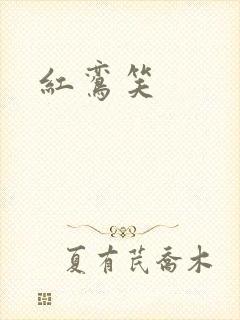 紅鸞笑
夏有芪喬木